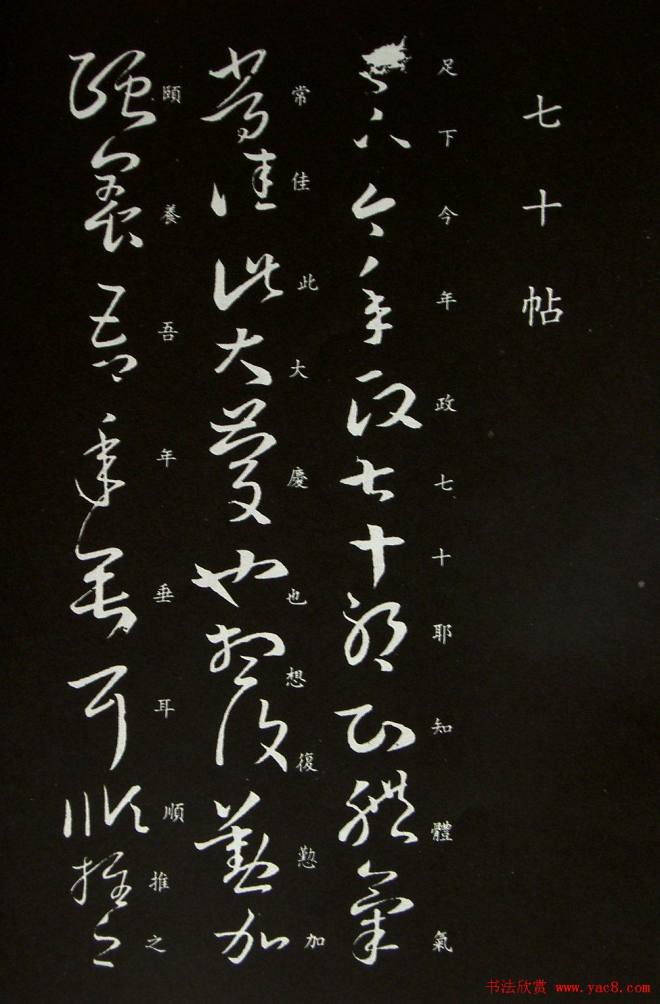 七十帖
足下今年政七十耶知體氣
常佳此大慶也想復懃加
頤養吾年垂耳順推之
书法欣赏 www.yac8.com